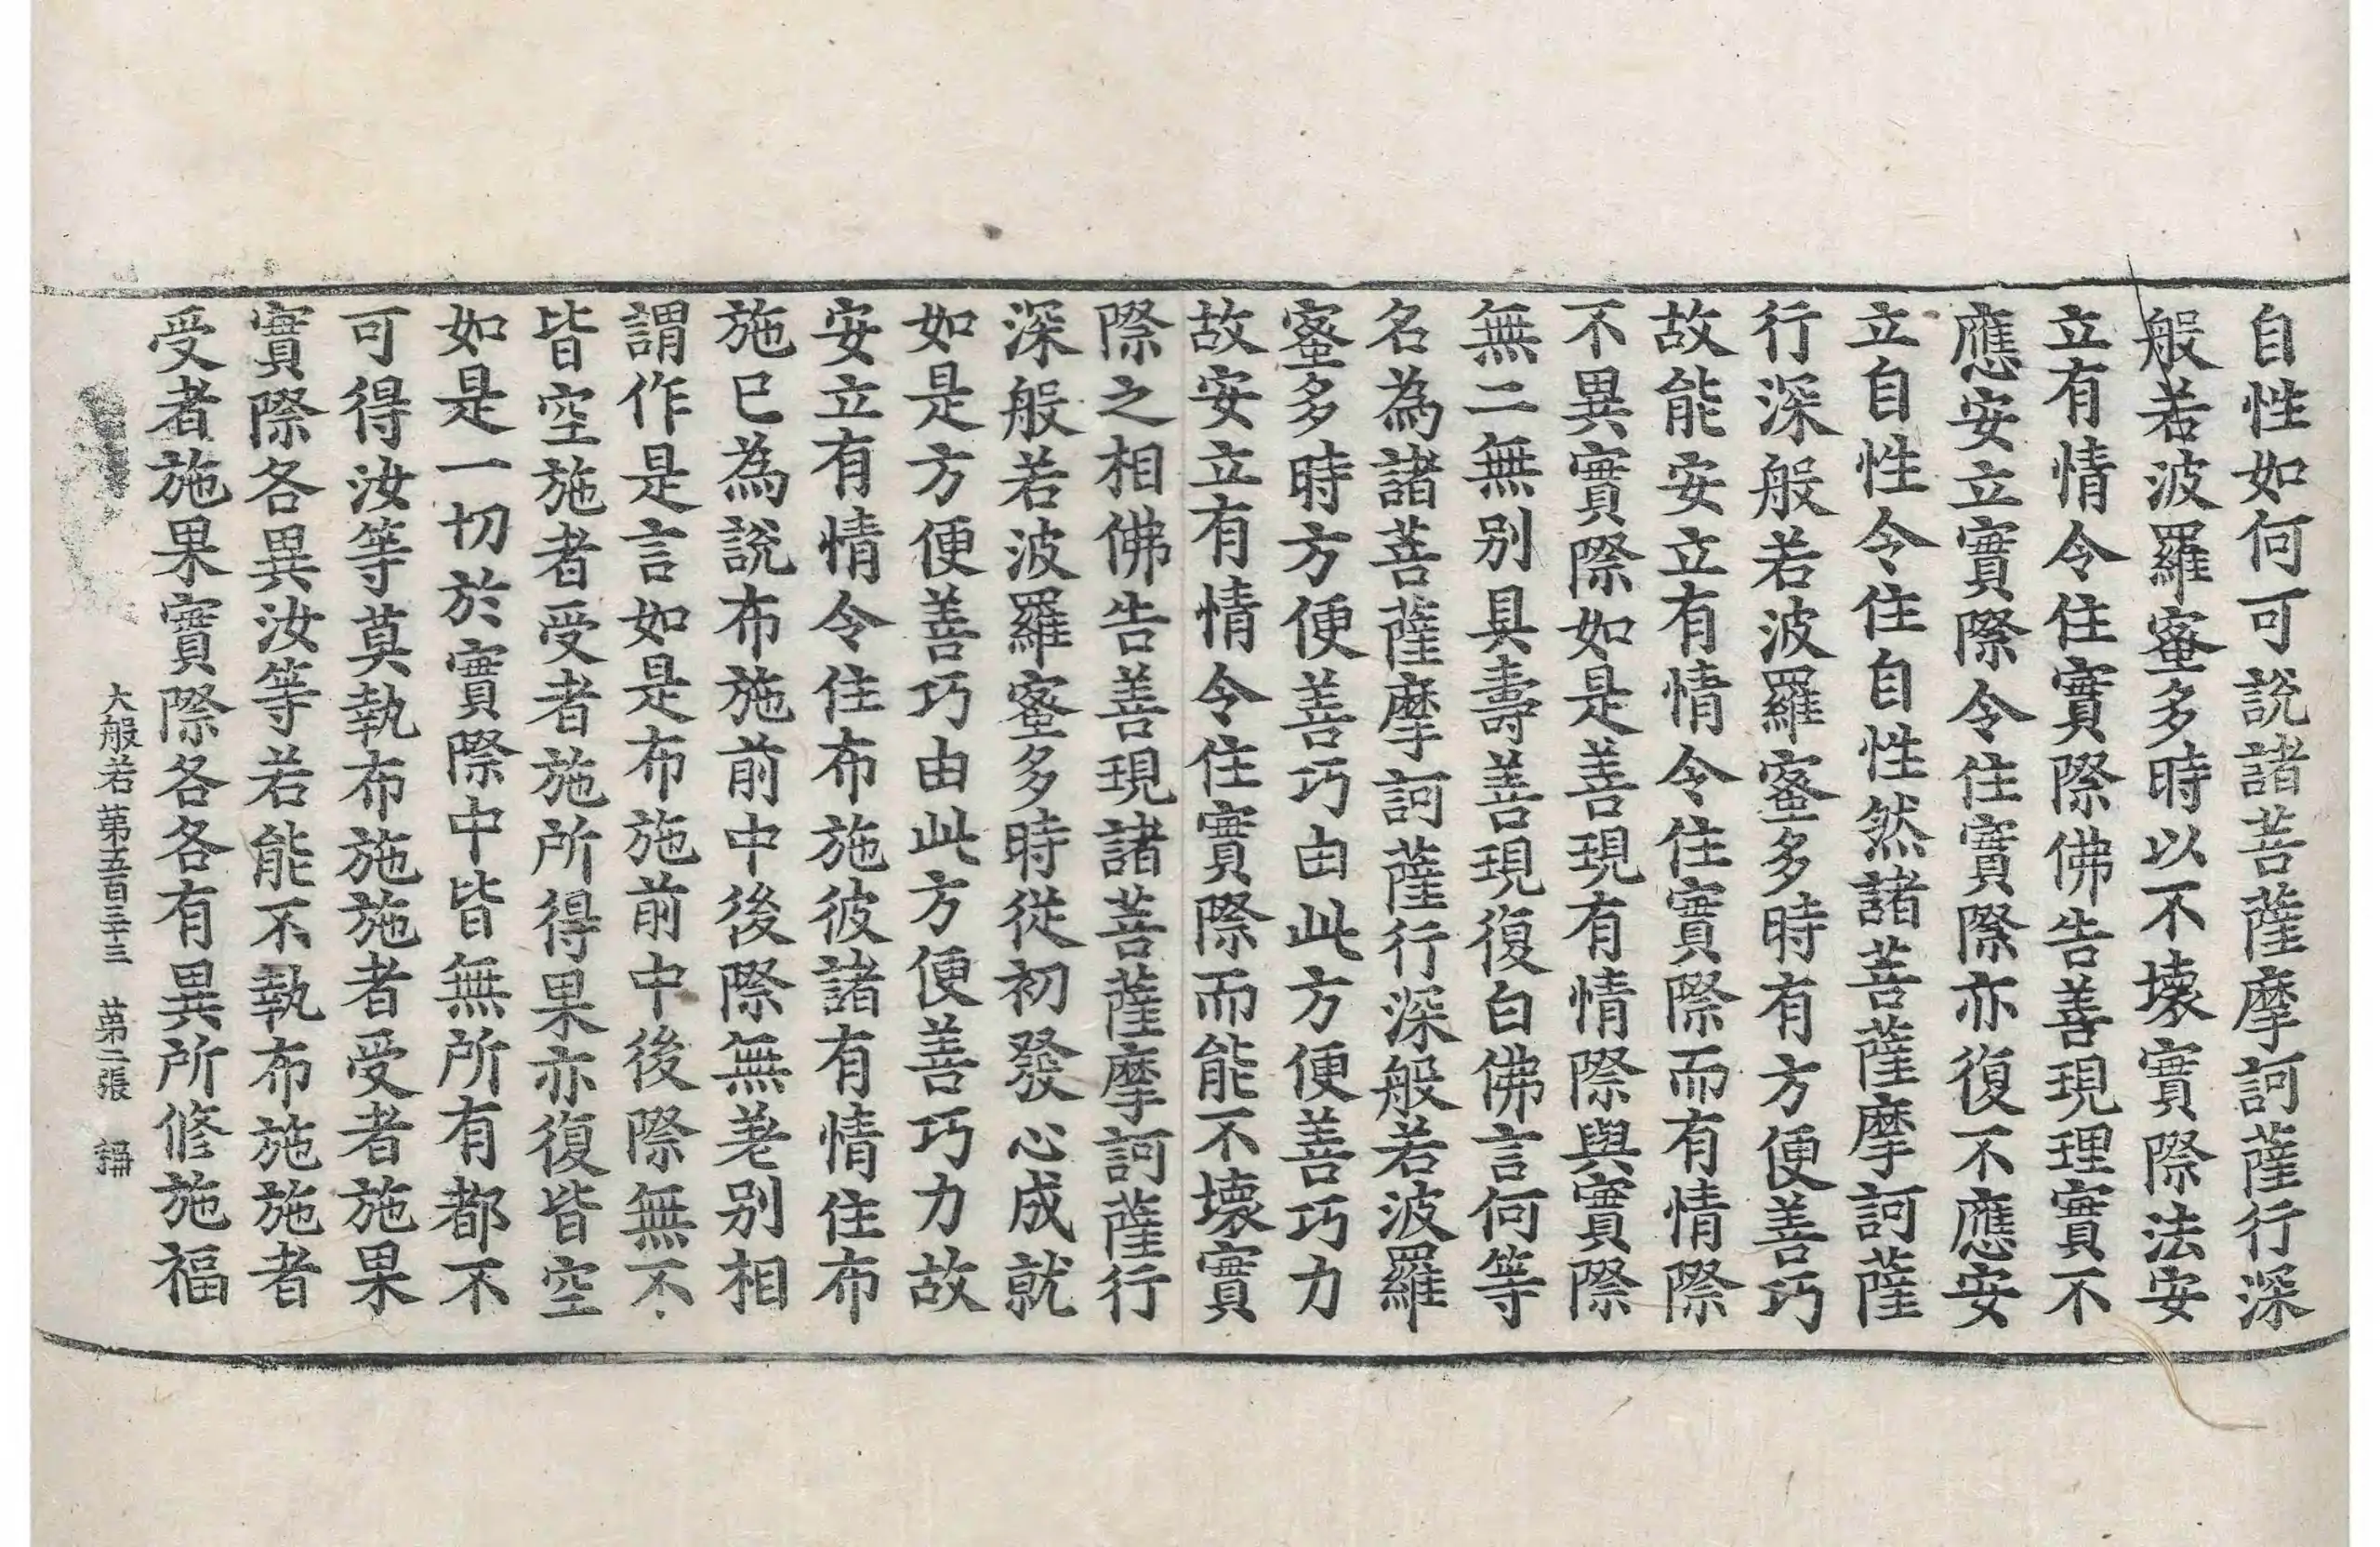 自性如何可說諸菩薩摩訶薩行深
般若波羅蜜多時以不壞實際法安
立有情令住實際佛告善現理實不
應安立實際令住實際亦復不應安
立自性令住自性然諸菩薩摩訶薩
行深般若波羅蜜多時有方便善巧
故能安立有情令住實際而有情際
不異實際如是善現有情際與實際
無二無別具壽善現復白佛言何等
名為諸菩薩摩訶薩行深般若波羅
蜜多時方便善巧由此方便善巧力
故安立有情令住實際而能不壞實
際之相佛告善現諸菩薩摩訶薩行
深般若波羅蜜多時從初發心成就
如是方便善巧由此方便善巧力故
安立有情令住布施彼諸有情住布
施已為說布施前中後際無差別相
謂作是言如是布施前中後際無不
皆空施者受者施所得果亦復皆空
如是一切於實際中皆無所有都不
可得汝等莫執布施施者受者施果
實際各異汝等若能不執布施施者
受者施果實際各各有異所修施福
大般若第五百三十三 第二張